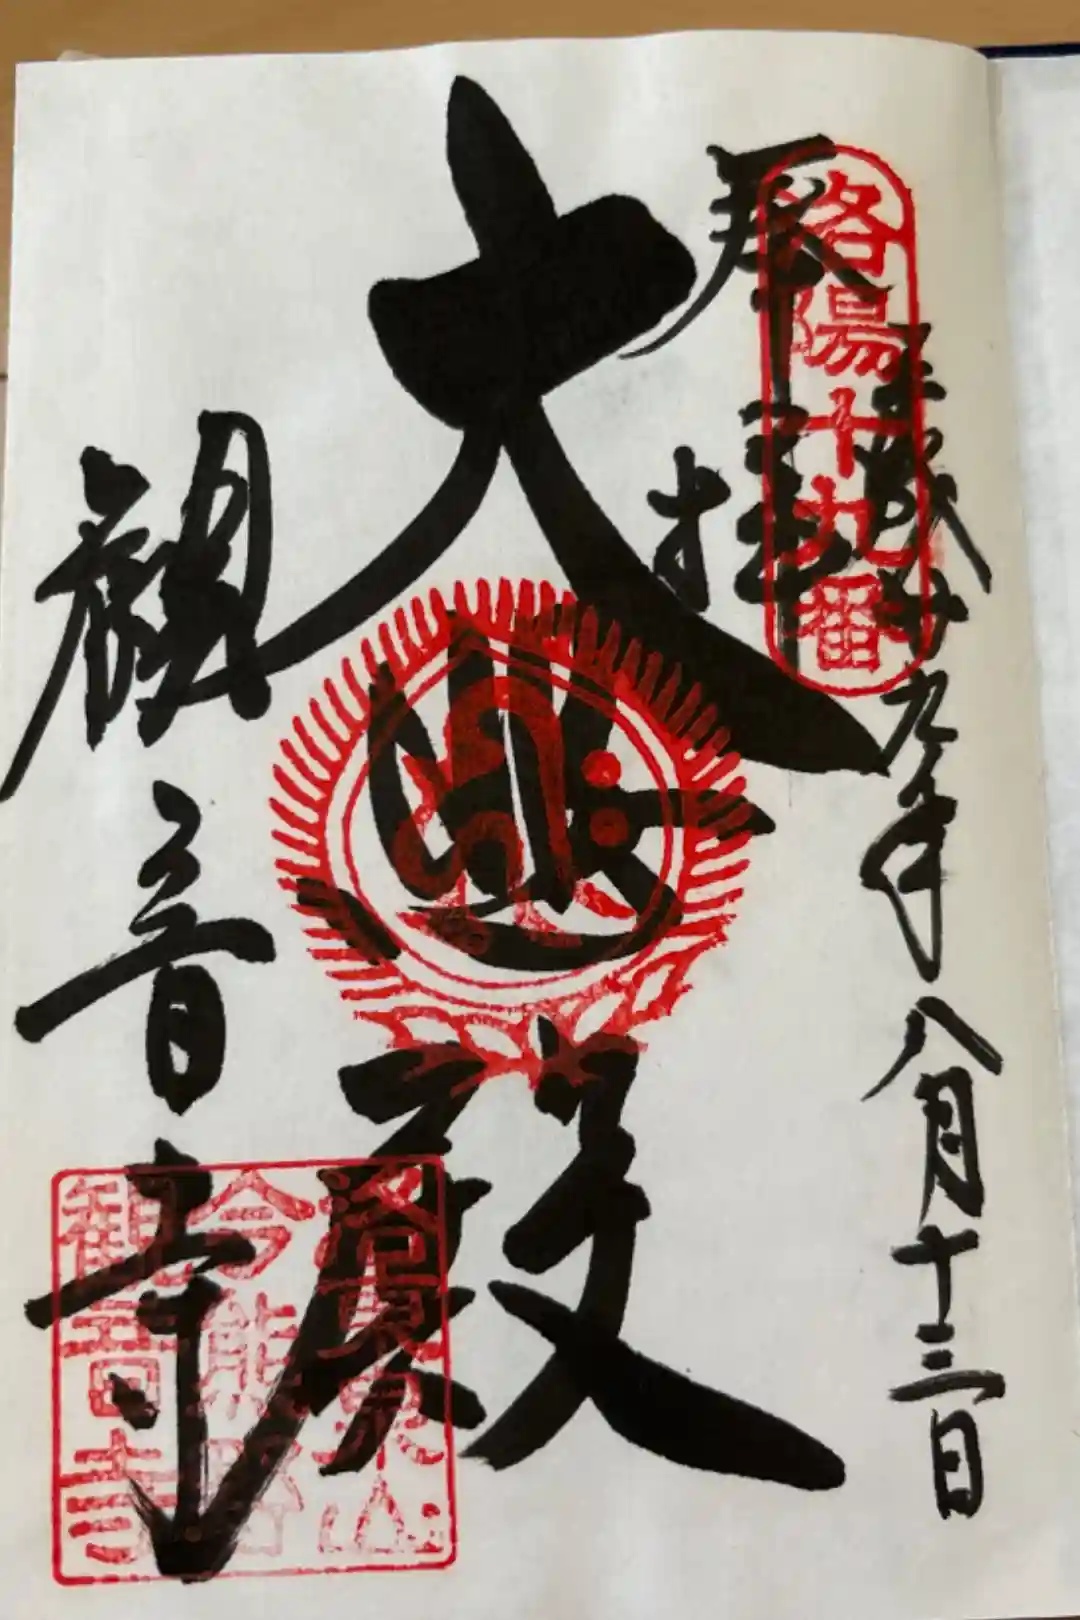 奉拝
洛陽十九番
平成廿九年八月十三日
大悲殿
観音寺
洛東泉山
今熊野
観音寺